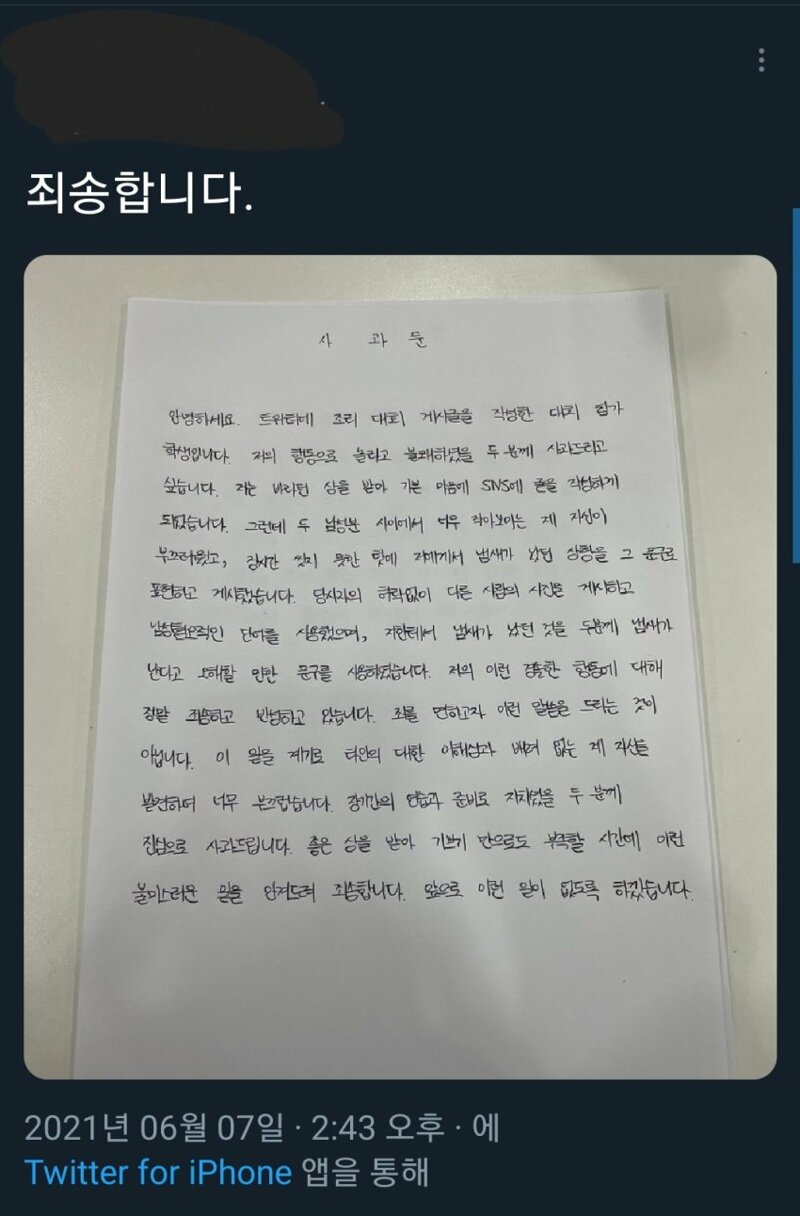 죄송합니다.
사 과 문
안녕하세요. 트위터에 조리 대회 게시글을 작성한 대회 참가
학생입니다. 저의 행동으로 놀라고 불쾌하셨을 두 분께 사과드리고
싶습니다. 저는 바라던 상을 받아 기쁜 마음에 SNS에 글을 작성하게
되었습니다. 그런데 두 남성분 사이에서 너무 작아보이는 제 자신이
부끄러웠고, 장시간 씻지 못한 탓에 저에게서 냄새가 났던 상황을 그 문구로
표현하고 게시했습니다. 당사자의 허락없이 다른 사람의 사진을 게시하고
남성혐오적인 단어를 사용했으며, 저한테서 냄새가 났던 것을 두분께 냄새가
난다고 오해할 만한 문구를 사용하였습니다. 저의 이런 경솔한 행동에 대해
정말 죄송하고 반성하고 있습니다. 죄를 면하고자 이런 말씀을 드리는 것이
아닙니다. 이 일을 계기로 타인의 대한 이해심과 배려 없는 제 자신을
발견하여 너무 부끄럽습니다. 장기간의 연습과 준비로 지치셨을 두 분께
진심으로 사과드립니다. 좋은 상을 받아 기쁘기 만으로도 부족할 시간에 이런
불미스러운 일을 안겨드려 죄송합니다. 앞으로 이런 일이 없도록 하겠습니다.
2021년 06월 07일 · 2:43 오후 · 에
Twitter for iPhone 앱을 통해